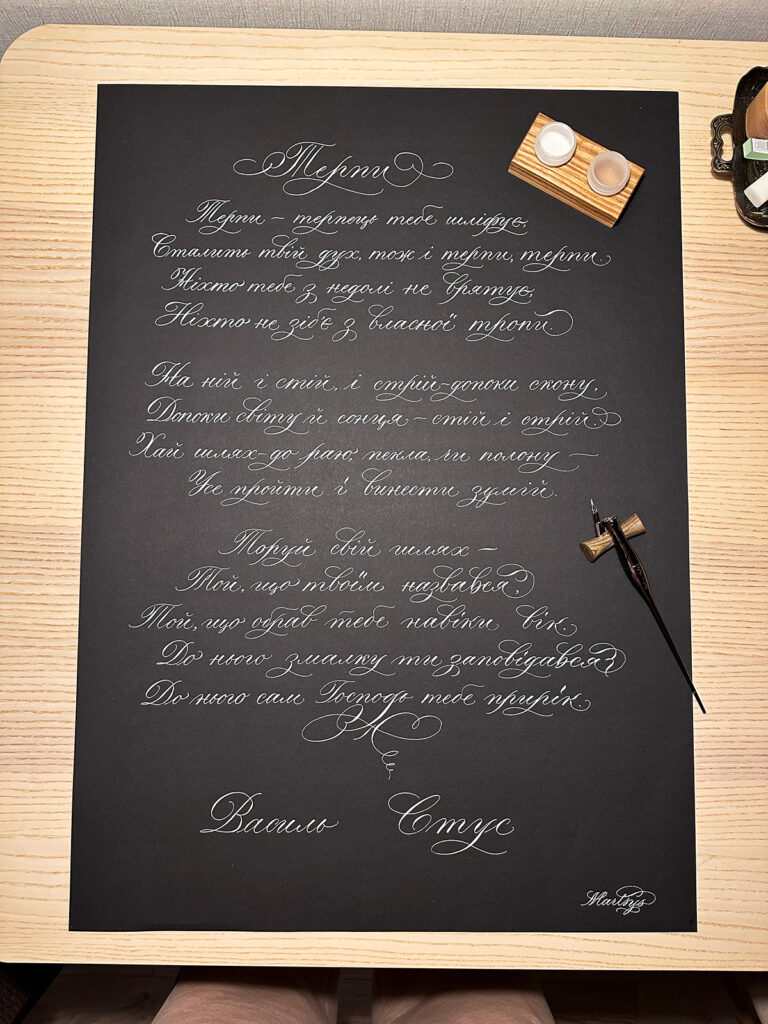 Терпи
Терпи – терпець тебе шліфує,
Сталить твій дух, тож і терпи, терпи.
Ніхто тебе з недолі не врятує,
Ніхто не зіб'є з власної тропи.
На ній і стій, і стрій – допоки скону,
Допоки світу й сонця – стій і стрій.
Хай шлях – до раю, пекла, чи полону –
Усе пройти й винести зумій.
Торуй свій шлях –
Той, що твоїм назвався,
Той, що обрав тебе навіки вік.
До нього змалку ти заповідався
До нього сам Господь тебе прирік.
Василь Стус
Martsys